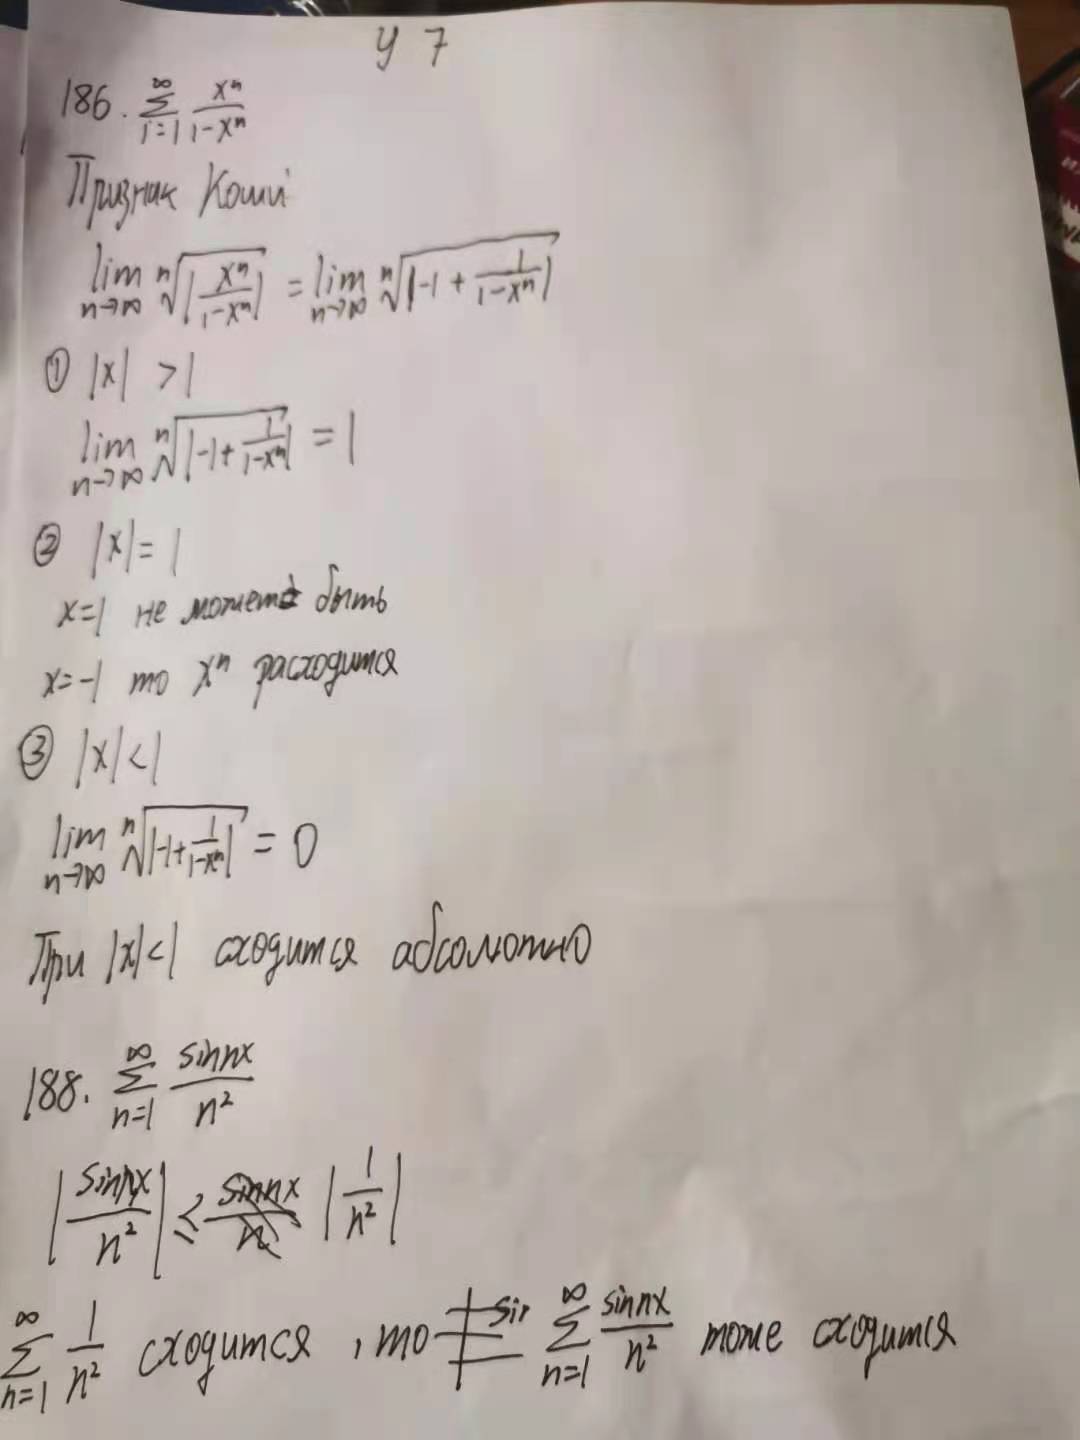 У 7
186. ∑_{i=1}^{∞} x^n/(1-x^n)
Признак Коши
lim_{n→∞} ⁿ√|x^n/(1-x^n)| = lim_{n→∞} ⁿ√|-1 + 1/(1-x^n)|
① |x| > 1
lim_{n→∞} ⁿ√|-1 + 1/(1-x^n)| = 1
② |x| = 1
x=1 не может быть
x=-1 то x^n расходится
③ |x| < 1
lim_{n→∞} ⁿ√|-1 + 1/(1-x^n)| = 0
При |x|<1 сходится абсолютно
188. ∑_{n=1}^{∞} sinnx/n²
|sinnx/n²| ≤ sinnx/n |1/n²|
∑_{n=1}^{∞} 1/n² сходится , то sin ∑_{n=1}^{∞} sinnx/n² тоже сходится